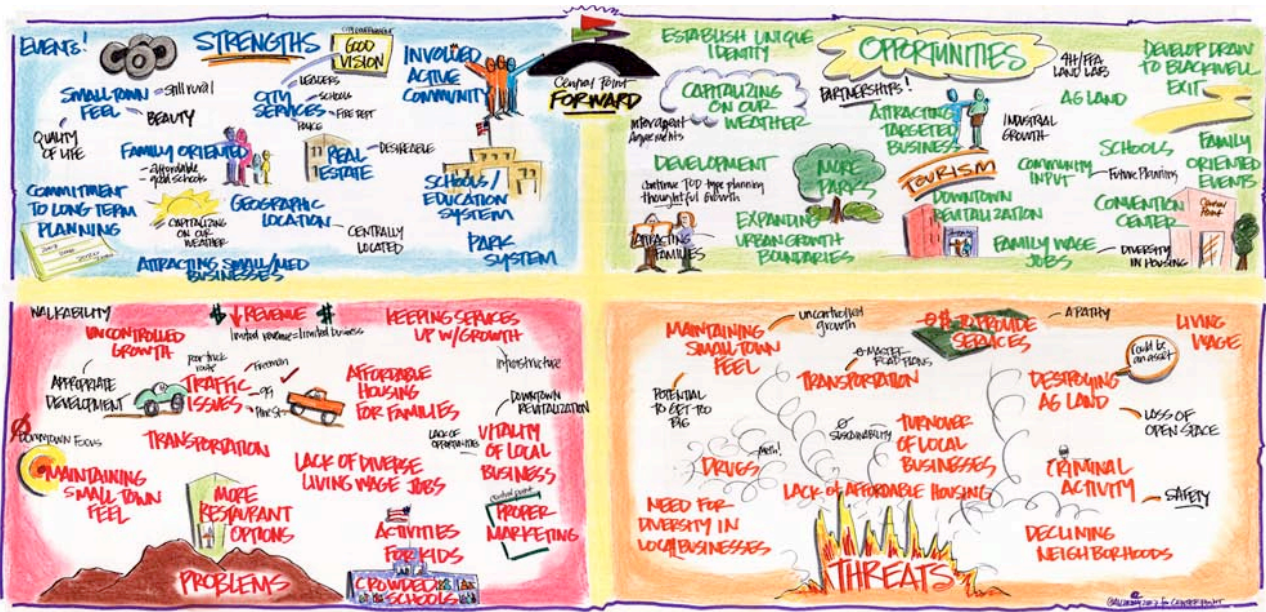 EVENTS!
STRENGTHS
CITY GOVERNMENT
GOOD
VISION
INVOLVED
ACTIVE
COMMUNITY
SMALL TOWN
FEEL
still rural
BEAUTY
CITY
SERVICES
LEADERS
SCHOOLS
FIRE DEPT
POLICE
QUALITY
OF LIFE
FAMILY ORIENTED
- affordable
- good schools
REAL
ESTATE
DESIREABLE
SCHOOLS /
EDUCATION
SYSTEM
COMMITMENT
TO LONG TERM
PLANNING
CAPITALIZING
ON OUR
WEATHER
GEOGRAPHIC
LOCATION
CENTRALLY
LOCATED
PARK
SYSTEM
ATTRACTING SMALL/MED
BUSINESSES
Central Point
FORWARD
ESTABLISH UNIQUE
IDENTITY
OPPORTUNITIES
4H/FFA
LAND LAB
DEVELOP DRAIN
TO BLACKWELL
EXIT
CAPITALIZING
ON OUR
WEATHER
PARTNERSHIPS!
AG LAND
Agreements
ATTRACTING
TARGETED
BUSINESS
INDUSTRIAL
GROWTH
SCHOOLS
FAMILY
ORIENTED
EVENTS
DEVELOPMENT
continue TOD type planning
thoughtful Growth
MORE
PARKS
TOURISM
COMMUNITY
INPUT
Future Planning
DOWNTOWN
REVITALIZATION
CONVENTION
CENTER
Central
Point
ATTRACTING
FAMILIES
EXPANDING
URBAN GROWTH
BOUNDARIES
FAMILY WAGE
JOBS
DIVERSITY
IN HOUSING
WALKABILITY
$ ↓ REVENUE $
limited revenue = limited business
KEEPING SERVICES
UP W/GROWTH
infrastructure
UNCONTROLLED
GROWTH
poor truck
route
TRAFFIC
ISSUES
Freeman
99
Pine St.
APPROPRIATE
DEVELOPMENT
AFFORDABLE
HOUSING
FOR FAMILIES
DOWNTOWN
REVITALIZATION
DOWNTOWN FOCUS
TRANSPORTATION
LACK OF
OPPORTUNITIES
VITALITY
OF LOCAL
BUSINESS
MAINTAINING
SMALL TOWN
FEEL
MORE
RESTAURANT
OPTIONS
LACK OF DIVERSE
LIVING WAGE JOBS
central point
PROPER
MARKETING
ACTIVITIES
FOR KIDS
CROWDED
SCHOOLS
PROBLEMS
MAINTAINING
SMALL TOWN
FEEL
uncontrolled
growth
$ TO PROVIDE
SERVICES
APATHY
LIVING
WAGE
Could be
an asset
TRANSPORTATION
DESTROYING
AG LAND
POTENTIAL
TO GET TOO
BIG
LOSS OF
OPEN SPACE
SUSTAINABILITY
TURNOVER
OF LOCAL
BUSINESSES
DRUGS
Meth!
CRIMINAL
ACTIVITY
SAFETY
LACK OF AFFORDABLE HOUSING
NEED FOR
DIVERSITY IN
LOCAL BUSINESSES
DECLINING
NEIGHBORHOODS
THREATS